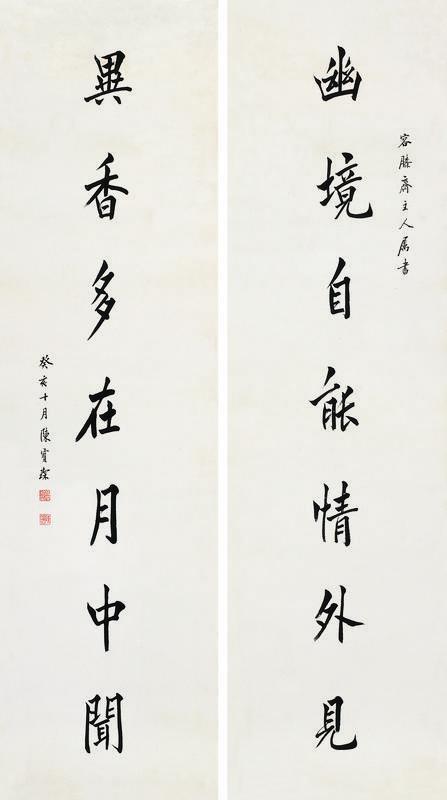 容膝齋主人屬書
幽境自能情外見
異香多在月中聞
癸亥十月陳寶琛